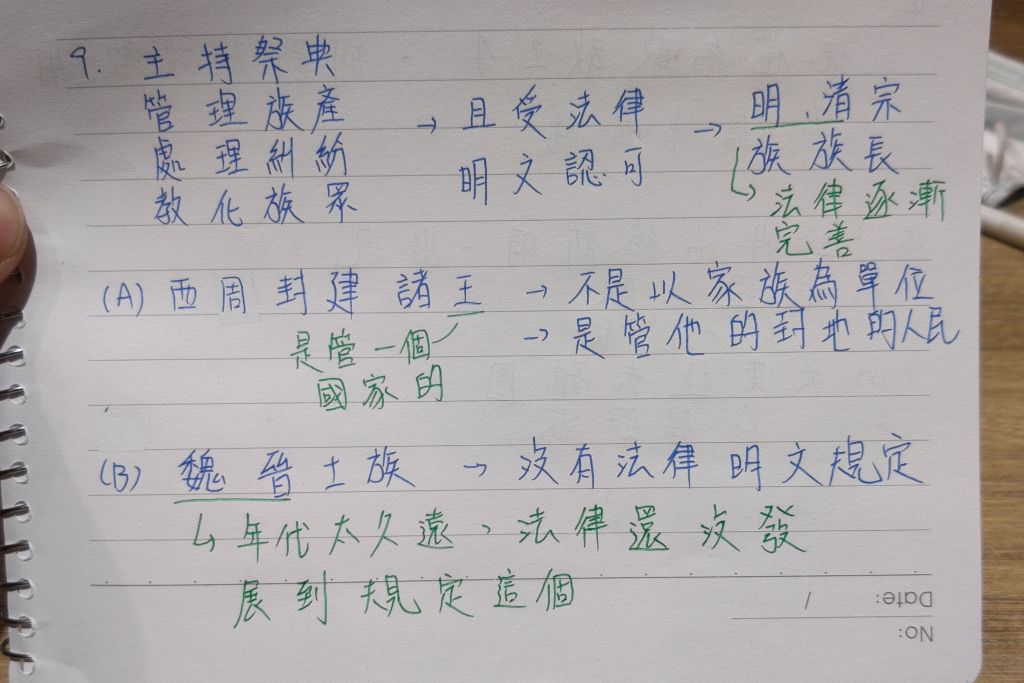 9. 主持祭典
管理族產
處理糾紛
教化族眾
→ 且受法律
明文認可
→ 明、清宗
族族長
↳ 法律逐漸
完善
(A) 西周封建諸王 → 不是以家族為單位
→ 是管他的封地的人民
是管一個
國家的
(B) 魏晉士族 → 沒有法律明文規定
↳ 年代太久遠、法律還沒發
展到規定這個
Date: /
No: